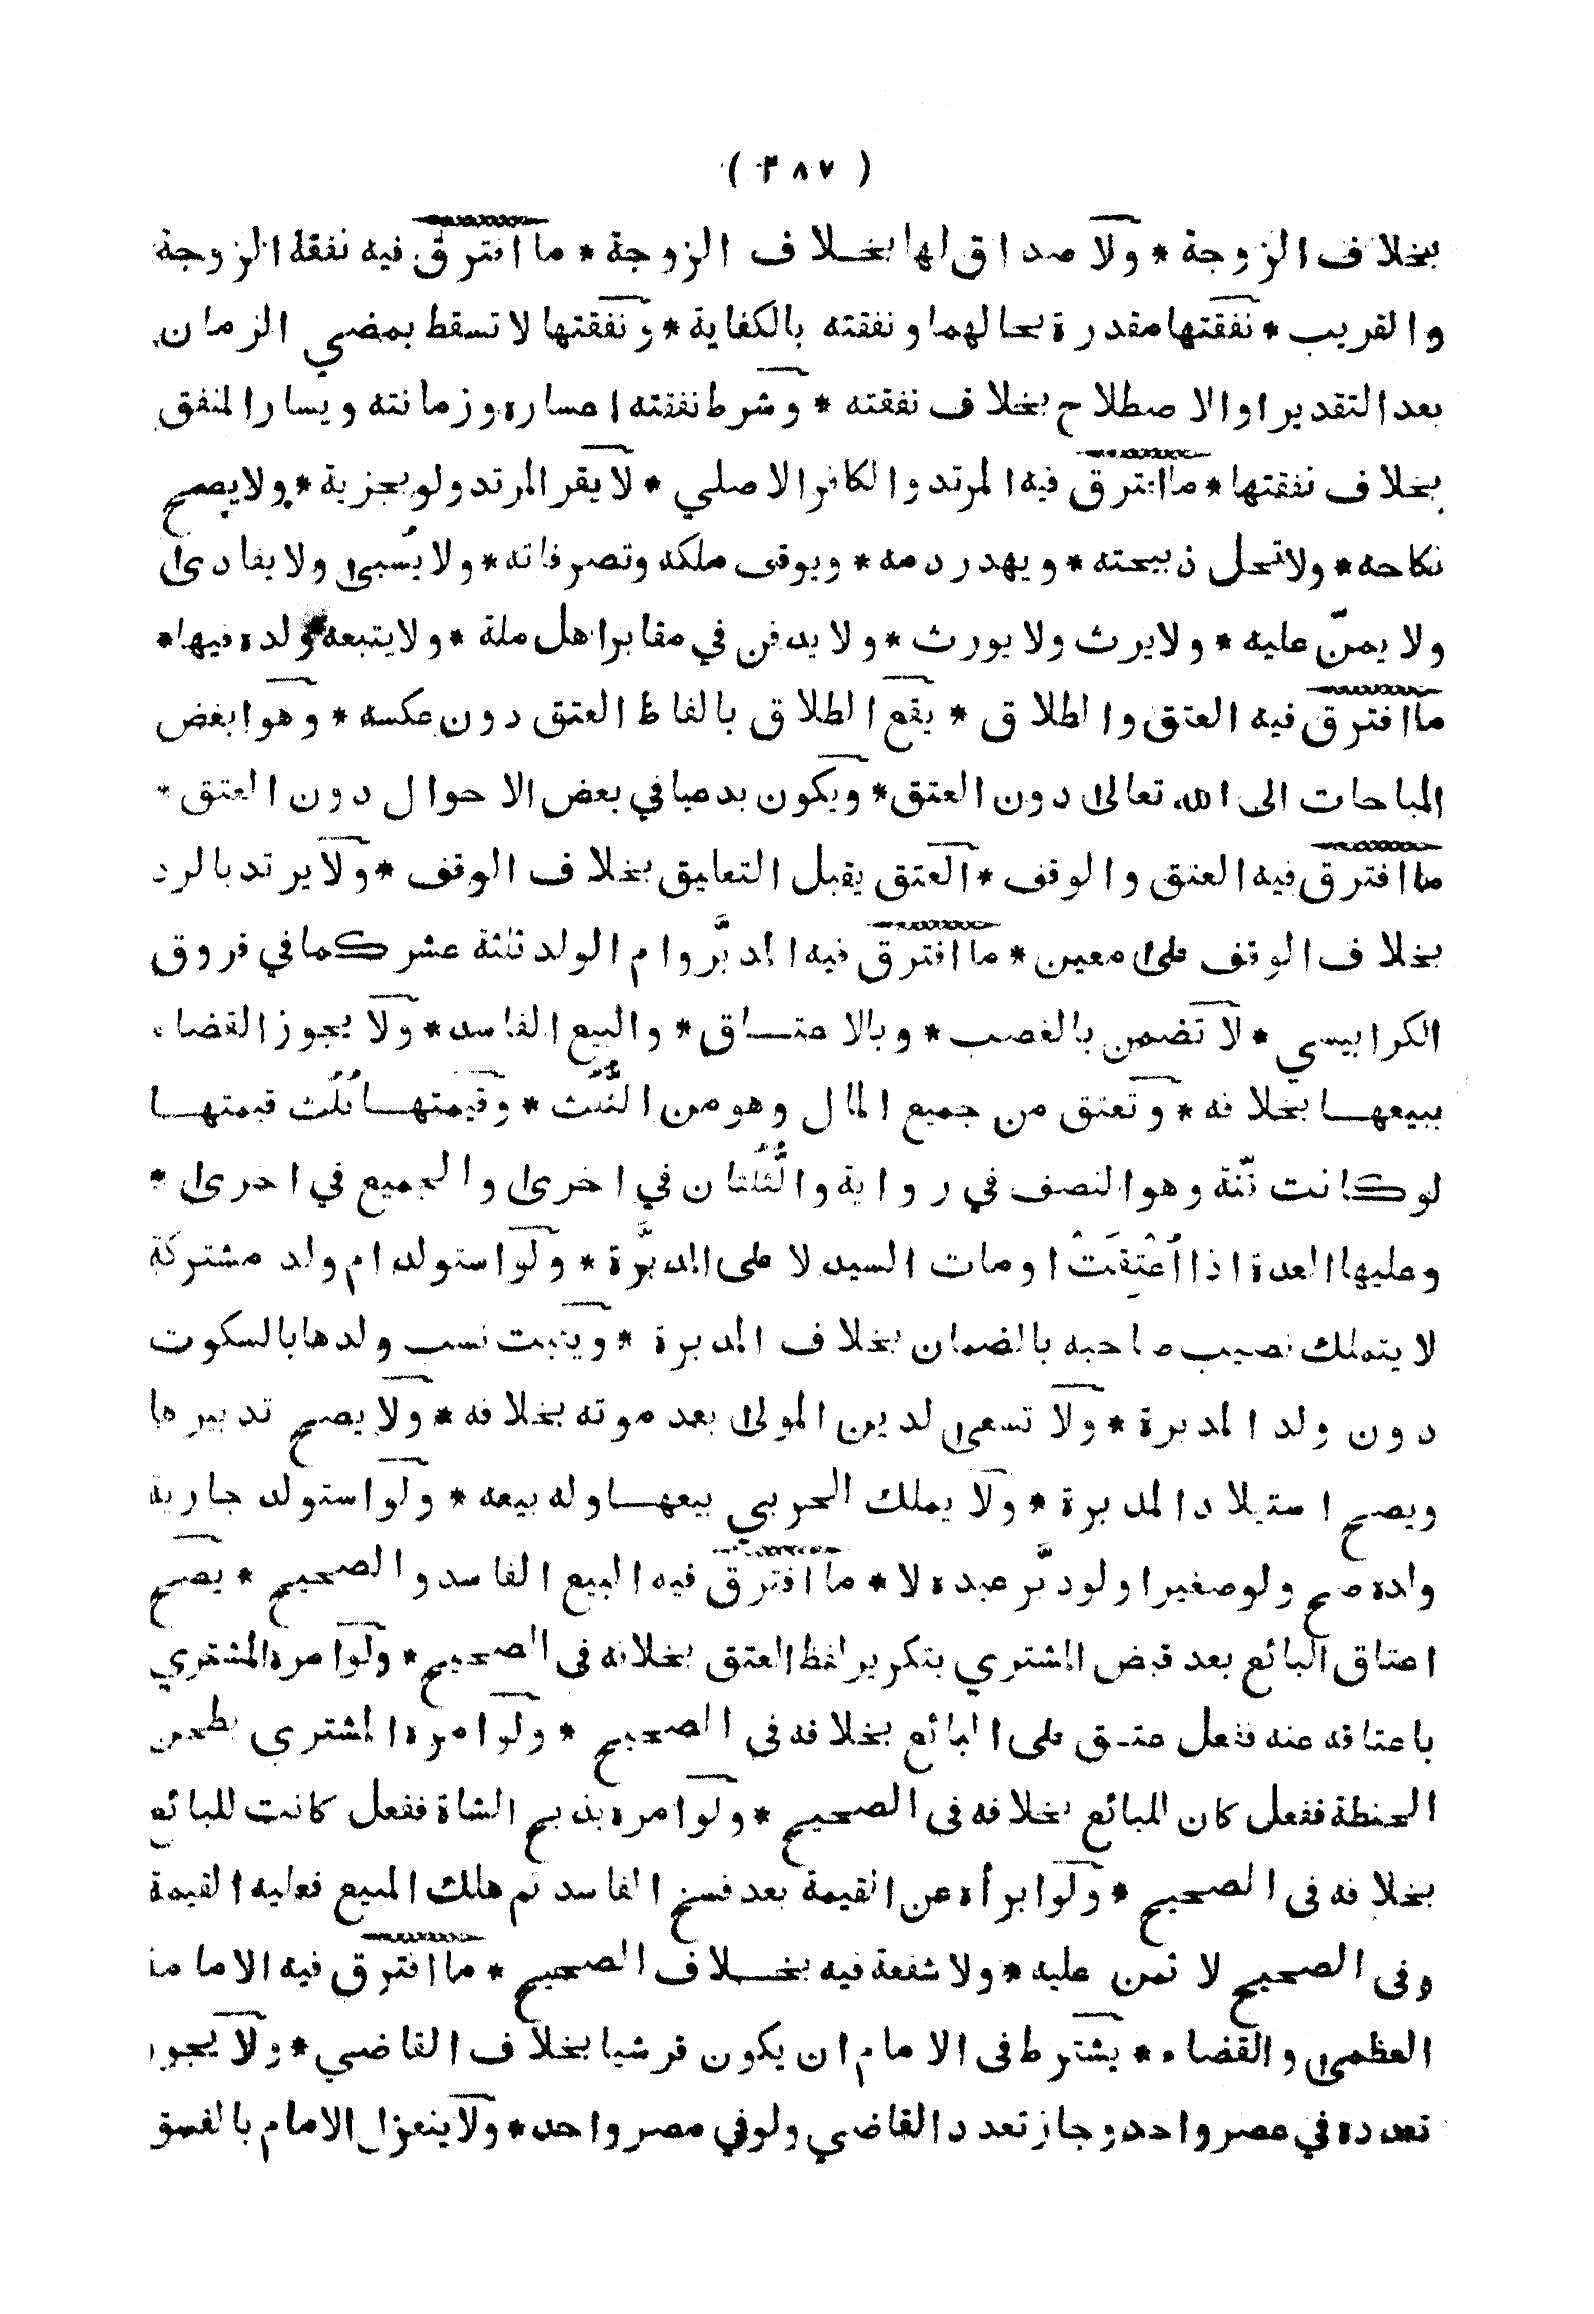 ( ٣٨٧ )
بخلاف الزوجة * ولا صداق لها بخلاف الزوجة * ما افترق فيه نفقة الزوجة
والقريب * نفقتها مقدرة بحالهما ونفقته بالكفاية * ونفقتها لا تسقط بمضي الزمان
بعد التقدير او الاصطلاح بخلاف نفقته * وشرط نفقته اعساره وزمانته ويسار المنفق
بخلاف نفقتها * ما افترق فيه المرتد والكافر الاصلي * لا يقر المرتد ولو بجزية * ولا يصح
نكاحه * ولا تحل ذبيحته * ويهدر دمه * ويوقف ملكه وتصرفاته * ولا يُسبىٰ ولا يفادىٰ
ولا يمنّ عليه * ولا يرث ولا يورث * ولا يدفن في مقابر اهل ملة * ولا يتبعه ولده فيها *
ما افترق فيه العتق والطلاق * يقع الطلاق بالفاظ العتق دون عكسه * وهو ابغض
المباحات الى الله تعالىٰ دون العتق * ويكون بدعيا في بعض الاحوال دون العتق *
ما افترق فيه العتق والوقف * العتق يقبل التعليق بخلاف الوقف * ولا يرتد بالرد
بخلاف الوقف علىٰ معين * ما افترق فيه المدبَّر وام الولد ثلثة عشر كما في فروق
الكرابيسي * لا تضمن بالغصب * وبالاعتاق * والبيع الفاسد * ولا يجوز القضاء
ببيعها بخلافه * وتعتق من جميع المال وهو من الثُّلُث * وقيمتها ثُلُث قيمتها
لو كانت قنّة وهو النصف في رواية والثُّلُثان في اخرىٰ والجميع في اخرىٰ *
وعليها العدة اذا اُعْتِقَتْ او مات السيد لا على المدبَّرة * ولو استولد ام ولد مشتركة
لا يتملك نصيب صاحبه بالضمان بخلاف المدبرة * ويثبت نسب ولدها بالسكوت
دون ولد المدبرة * ولا تسعىٰ لدين المولىٰ بعد موته بخلافه * ولا يصح تدبيرها
ويصح استيلاد المدبرة * ولا يملك الحربي بيعها وله بيعه * ولو استولد جارية
ولده صح ولو صغيرا ولو دبَّر عبده لا * ما افترق فيه البيع الفاسد والصحيح * يصح
اعتاق البائع بعد قبض المشتري بتكرير لفظ العتق بخلافه فى الصحيح * ولو امره المشتري
باعتاقه عنه ففعل عتق على البائع بخلافه في الصحيح * ولو امره المشتري بطحن
الحنطة ففعل كان للبائع بخلافه فى الصحيح * ولو امره بذبح الشاة ففعل كانت للبائع
بخلافه فى الصحيح * ولو ابرأه عن القيمة بعد فسخ الفاسد ثم هلك المبيع فعليه القيمة
وفى الصحيح لا ثمن عليه * ولا شفعة فيه بخلاف الصحيح * ما افترق فيه الامامة
العظمىٰ والقضاء * يشترط فى الامام ان يكون قرشيا بخلاف القاضي * ولا يجوز
تعدده في عصر واحد وجاز تعدد القاضي ولو في مصر واحد * ولا ينعزل الامام بالفسق